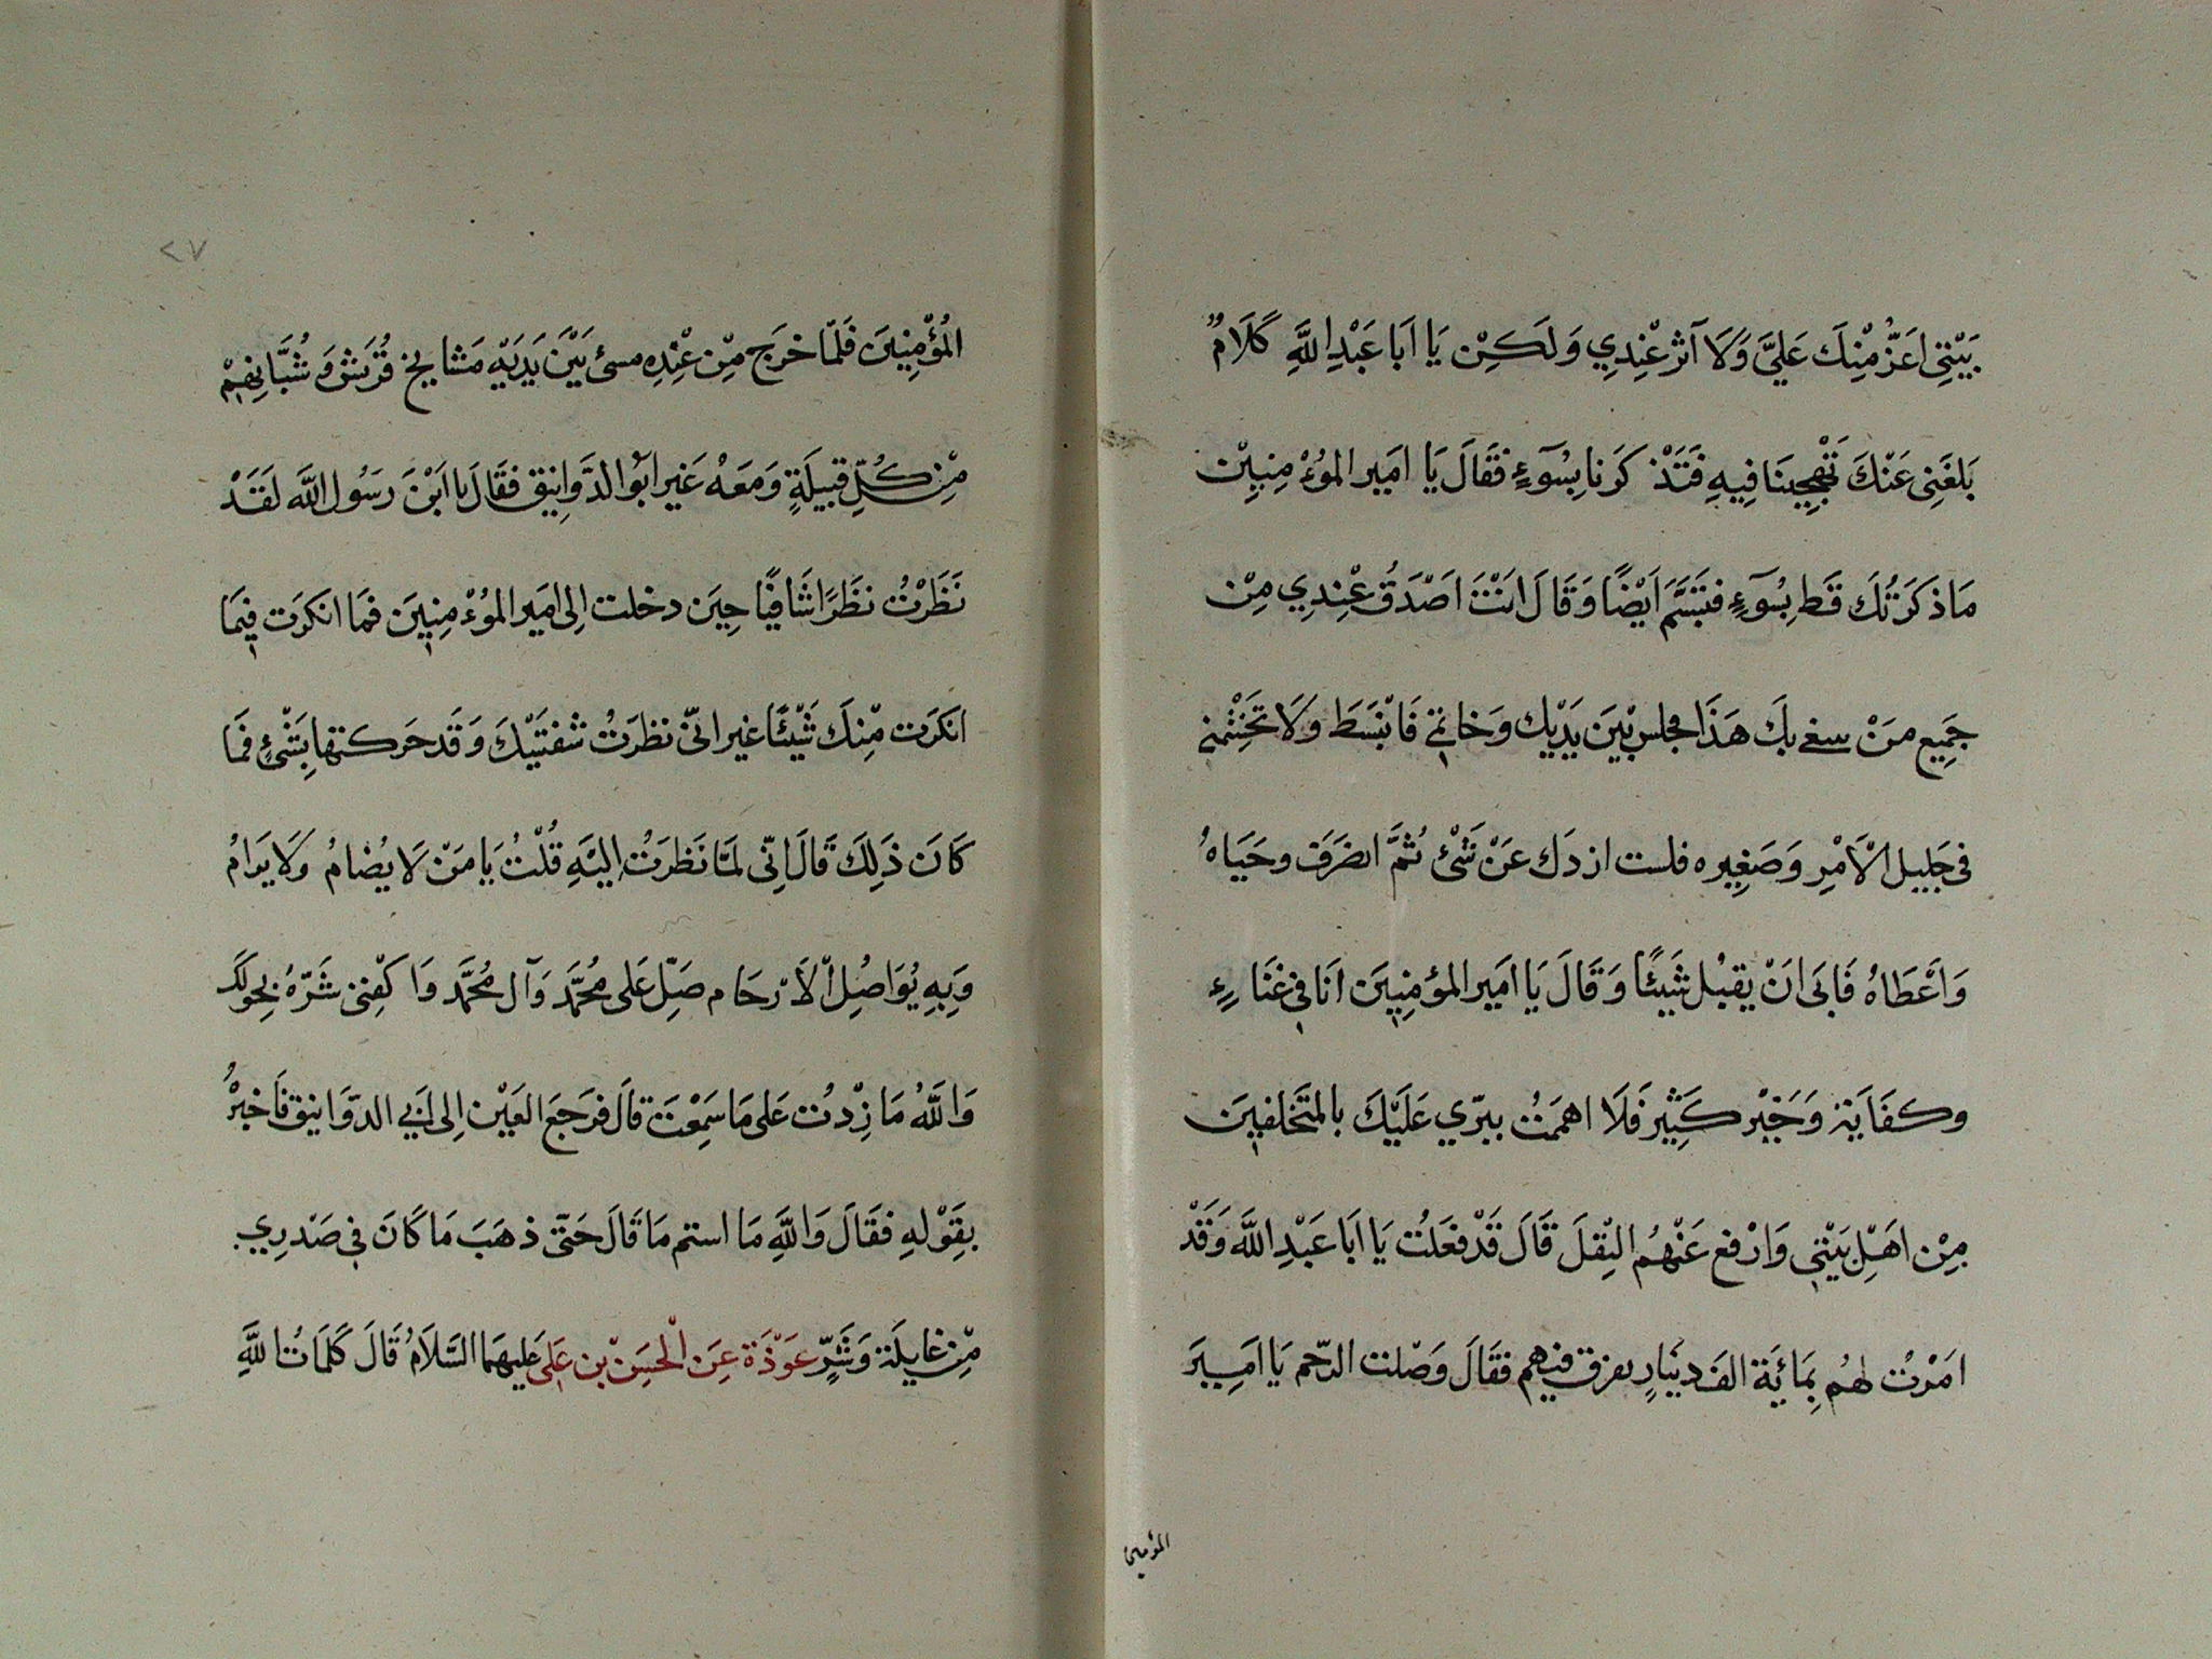 بَيْتِى اَعَزُّ مِنْكَ عَلَيَّ وَلَا آثر عِنْدِي وَلَكِنْ يَا اَبَا عَبْدِ اللَّهِ كَلَامٌ
بَلَغَنِى عَنْكَ تَهْجِينَا فِيهِ فَتَذْكَرَنا بِسُوٓءٍ فَقَالَ يَا امَير المؤُمِنِينْ
مَا ذكَرَتُكَ قَط بِسُوٓءٍ فتَبَسَّمَ اَيْضًا وَقَالَ انْتَ اَصْدَقُ عِنْدِي مِنْ
جَمِيع مَنْ سعى بِكَ هَذَا مجلس بَيْنَ يَدَيْك وَخاتمَى فَانْبَسَط ولَا تَخَنْشْمنى
فى جَلِيل الْاَمْرِ وَصَغِيره فلست ازدك عَنْ شَىْءٍ ثُمَّ انصَرَفَ وحَيَاهُ
وَاَعْطَاهُ فَابَى انْ يقبُل شَيئًا وَقَالَ يَا امَير المؤمِنِينَ انَا فى غَنَاءٍ
وكفَاية وَخَيْر كَثِيْر فَلَا اهمَمْتُ ببرّي عَلَيْكَ بالمتَخَلفينَ
مِنْ اهَلِ بَيْتى وَارْفع عَنْهُم القِتلَ قَالَ قَدْ فعَلَتْ يَا اَبَا عَبْدِ اللَّه وَقَدْ
امَرْتُ لهُم بِمَائَة الف دينَارٍ يفرق فيهم فقَالَ وَصْلت الرّحم يَا امَيِيرَ
المؤمنين
٢٧
المُؤْمِنِينَ فَلَمّا خرَج مِّنْ عِنْدِهِ مسىٰ بَيْنَ يَدَيْهِ مَشايخ قُريَش وَشُبَّانِهِمْ
مِّنْ كُلِّ قبِيلَةٍ وَمَعَهُ عَين ابُو الدَّوَانِيق فقَالَ يا ابْنَ رسَوُل اللَّه لَقَدْ
نَظَرْتُ نظَرًا شَافِيًا حِيَن دخلت اِلى امَير الموُءْمِنِينَ فمَا انكرَت فيمَا
انكَرَت مِّنكَ شَيْئًا غير انّى نظرَتُ شفتَيْكَ وَقَد حَركتها بِشَيْءٍ فَمَا
كَانَ ذَلِكَ قَالَ اِنّى لمَّا نَظَرتُ اِليَهِ قُلْتُ يَا مَنْ لَا يُضَامُ وَلَا يرَامُ
وَبِهِ يُوَاصِلُ الْاَرْحَام صَلِّ عَلى مُحَمَّد وَآل مُحَمَّد وَاكْفِنى شَرّهُ بِحوَلكَ
وَاللَّهُ مَا زِدْتُ عَلى مَا سَمِعْتَ قالَ فرَجَعَ العَيْن اِلى اَبي الدوَّانيق فَاخبَرْهُ
بقَوْلِهِ فقَالَ وَاللَّهِ مَا استم مَا قَالَ حَتّى ذهَبَ مَا كَانَ فى صَدْرِي
مِّنْ غايلَة وَشَرٍّ عَوْذَة عَنِ الْحسَنْ بن عَلى عَليهمَا السَّلَامُ قَالَ كَلِمَاتُ اللَّهِ